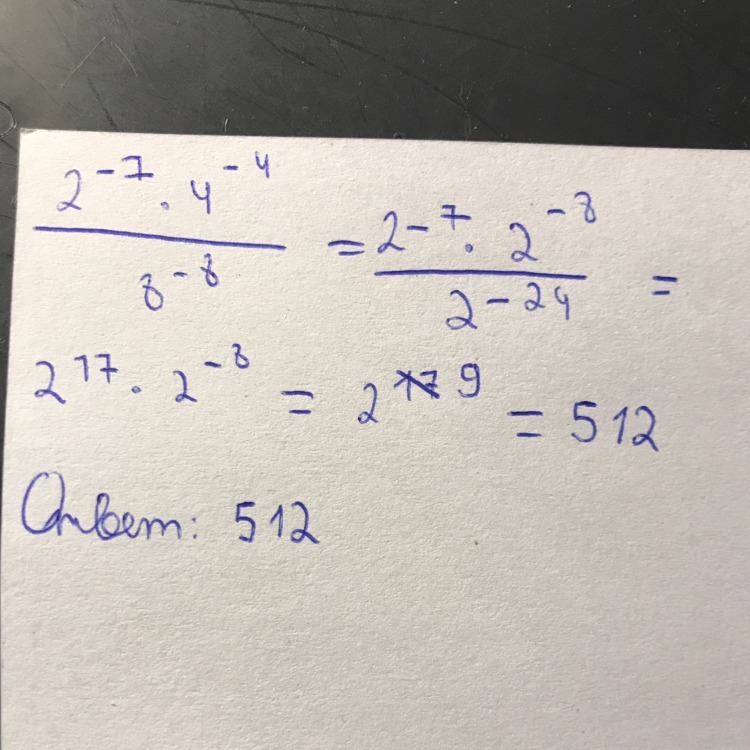 2⁻⁷ · 4⁻⁴ / 8⁻⁸ = 2⁻⁷ · 2⁻⁸ / 2⁻²⁴ =
2¹⁷ · 2⁻⁸ = 2⁹ = 512
Ответ: 512